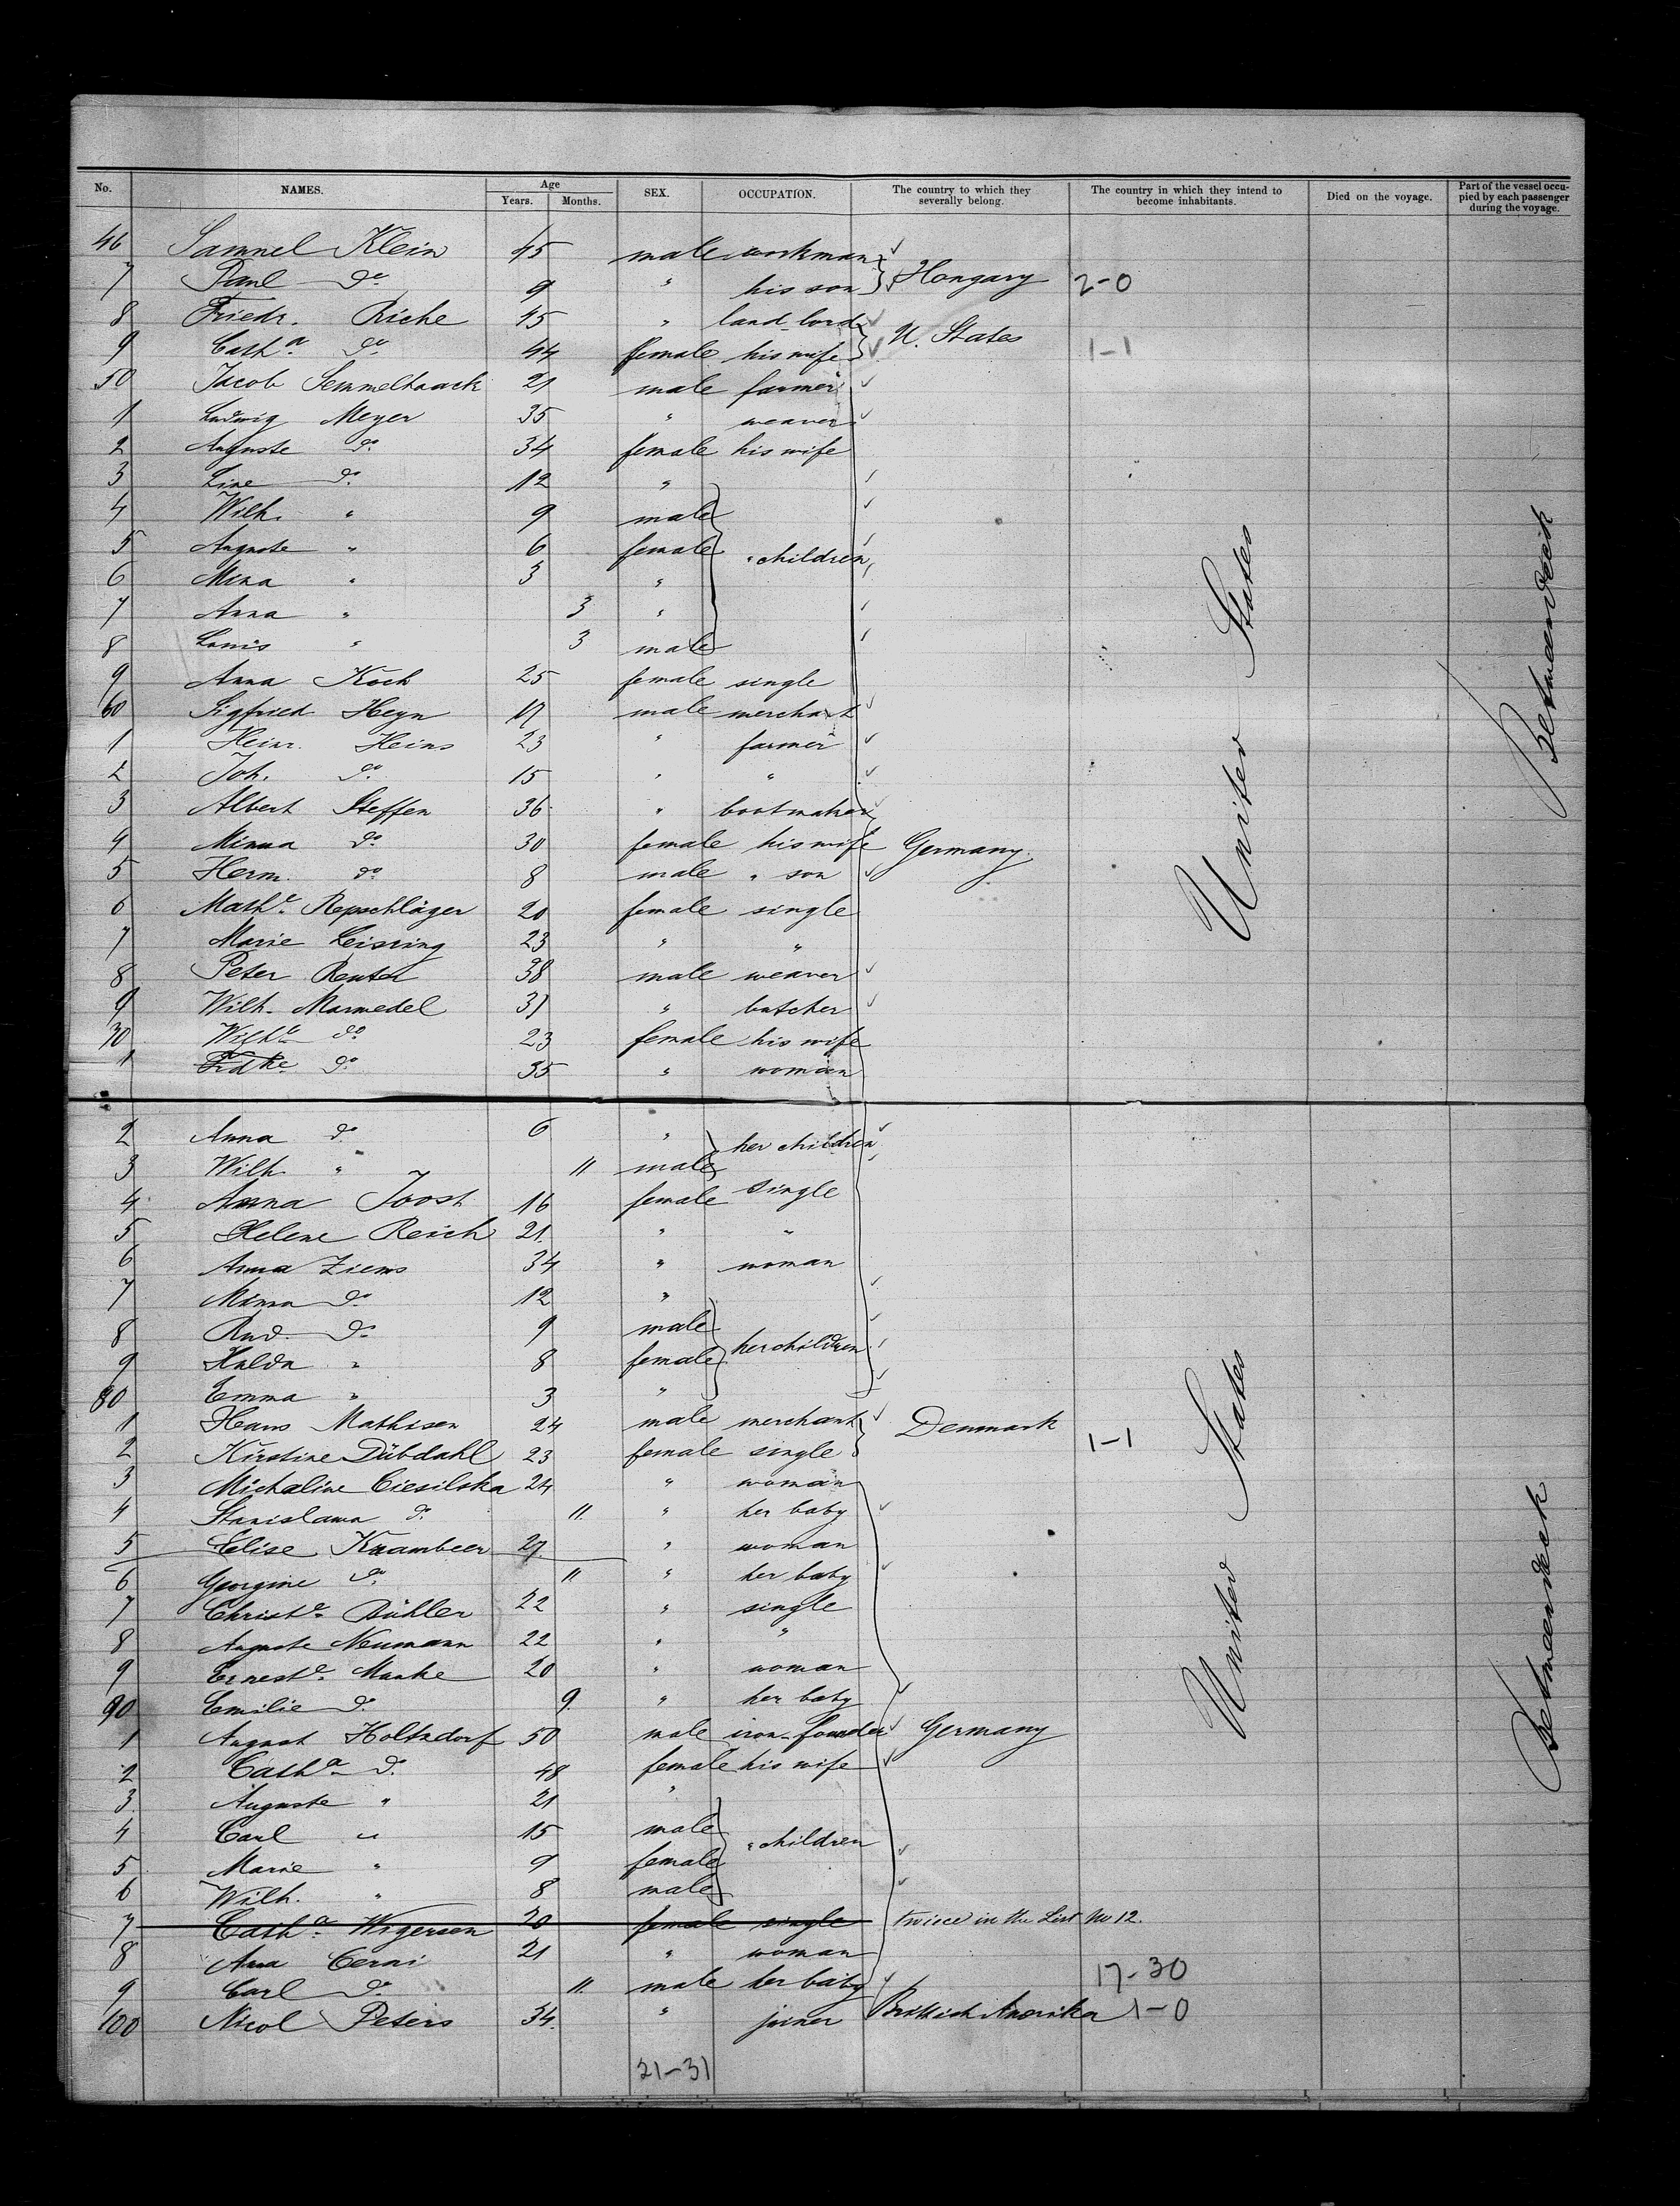 No. NAMES. Age Years. Months. SEX. OCCUPATION. The country to which they severally belong. The country in which they intend to become inhabitants. Died on the voyage. Part of the vessel occupied by each passenger during the voyage.
46 Samuel Klein 45 male workman
7 Paul do 9 " his son Hongary 2-0
8 Friedr. Riche 45 " land-lord
9 Catha. do 44 female his wife U. States 1-1
50 Jacob Semmelhaack 21 male farmer
1 Ludwig Meyer 35 " weaver
2 Auguste do 34 female his wife
3 Line do 12 "
4 Wilh. " 9 male
5 Auguste " 6 female " children
6 Mina " 3 "
7 Anna " 3 "
8 Louis " 3 male
9 Anna Koch 25 female single
60 Sigfried Heyn 17 male merchant
1 Heinr. Heins 23 " farmer
2 Joh. do 15 " "
3 Albert Steffen 36 " bootmaker
4 Minna do 30 female his wife Germany
5 Herm. do 8 male " son
6 Mathe. Repschläger 20 female single
7 Marie Leising 23 " "
8 Peter Reuter 38 male weaver
9 Wilh. Marmedel 31 " butcher
70 Wilhe do 23 female his wife
1 Fridke do 35 " woman
United States
Betweendeck
2 Anna do 6 " her children
3 Wilh. " 11 male
4 Anna Joost 16 female single
5 Helene Reich 21. " "
6 Anna Ziems 34 " woman
7 Minna do 12 "
8 Rud. do 9 male
9 Hulda " 8 female her children
80 Emma " 3 "
1 Hans Mathisen 24 male merchant Denmark
2 Kirstine Dübdahl 23 female single 1-1
3 Michaline Ciesilska 24 " woman
4 Stanislawa do 11. " her baby
5 Elise Krambeer 27. " woman
6 Georgine do 11 " her baby
7 Christe. Bühler 22 " single
8 Auguste Neumann 22 " "
9 Erneste. Manke 20 " woman
90 Emilie do 9. " her baby
1 August Holtzdorf 50 male iron-founder Germany
2 Catha do 48 female his wife
3 Auguste " 21 "
4 Carl " 15 male " children
5 Marie " 9 female
6 Wilh. " 8 male
7 Catha. Wigersen 20 female single twice in the List No 12.
8 Anna Cerni 21 " woman
9 Carl do 11. male her baby 17-30
100 Nicol Peters 34. " joiner Brittish Amerika 1-0
21-31
United States
Betweendeck